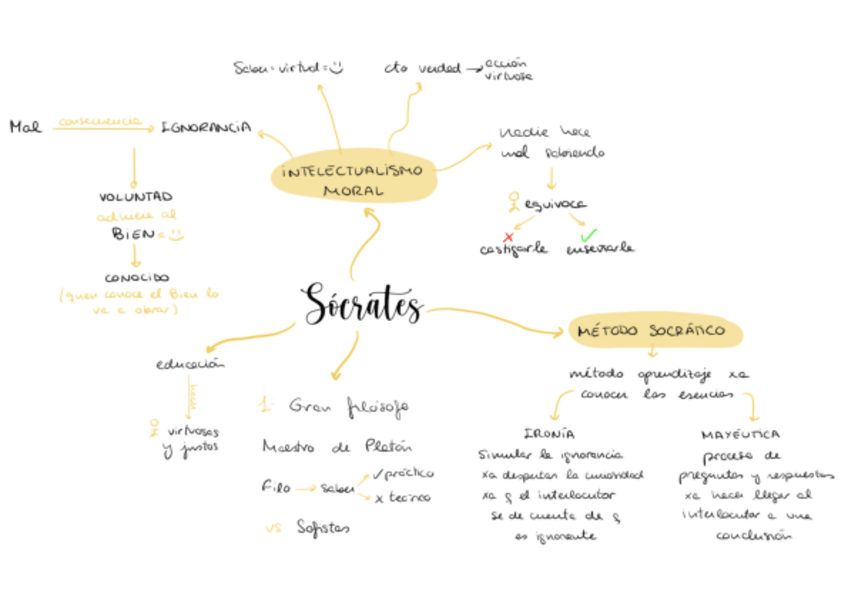 Saber=virtud=
cto verdad → acción
virtuosa
Mal consecuencia IGNORANCIA
nadie hace
mal sabiendo
INTELECTUALISMO
MORAL
VOLUNTAD
adhiere al
BIEN =
equivoca
castigarle enseñarle
CONOCIDO
(quien conoce el Bien lo
va a obrar)
Sócrates
MÉTODO SOCRÁTICO
educación
hacer
virtuosos
y justos
1. Gran filósofo
Maestro de Platón
Filo → saber
✓ práctico
x teórico
vs Sofistas
método aprendizaje xa
conocer las esencias
IRONÍA
Simular la ignorancia
xa despertar la curiosidad
xa q el interlocutor
se de cuenta de q
es ignorante
MAYÉUTICA
proceso de
preguntas y respuestas
xa hacer llegar al
interlocutor a una
conclusión